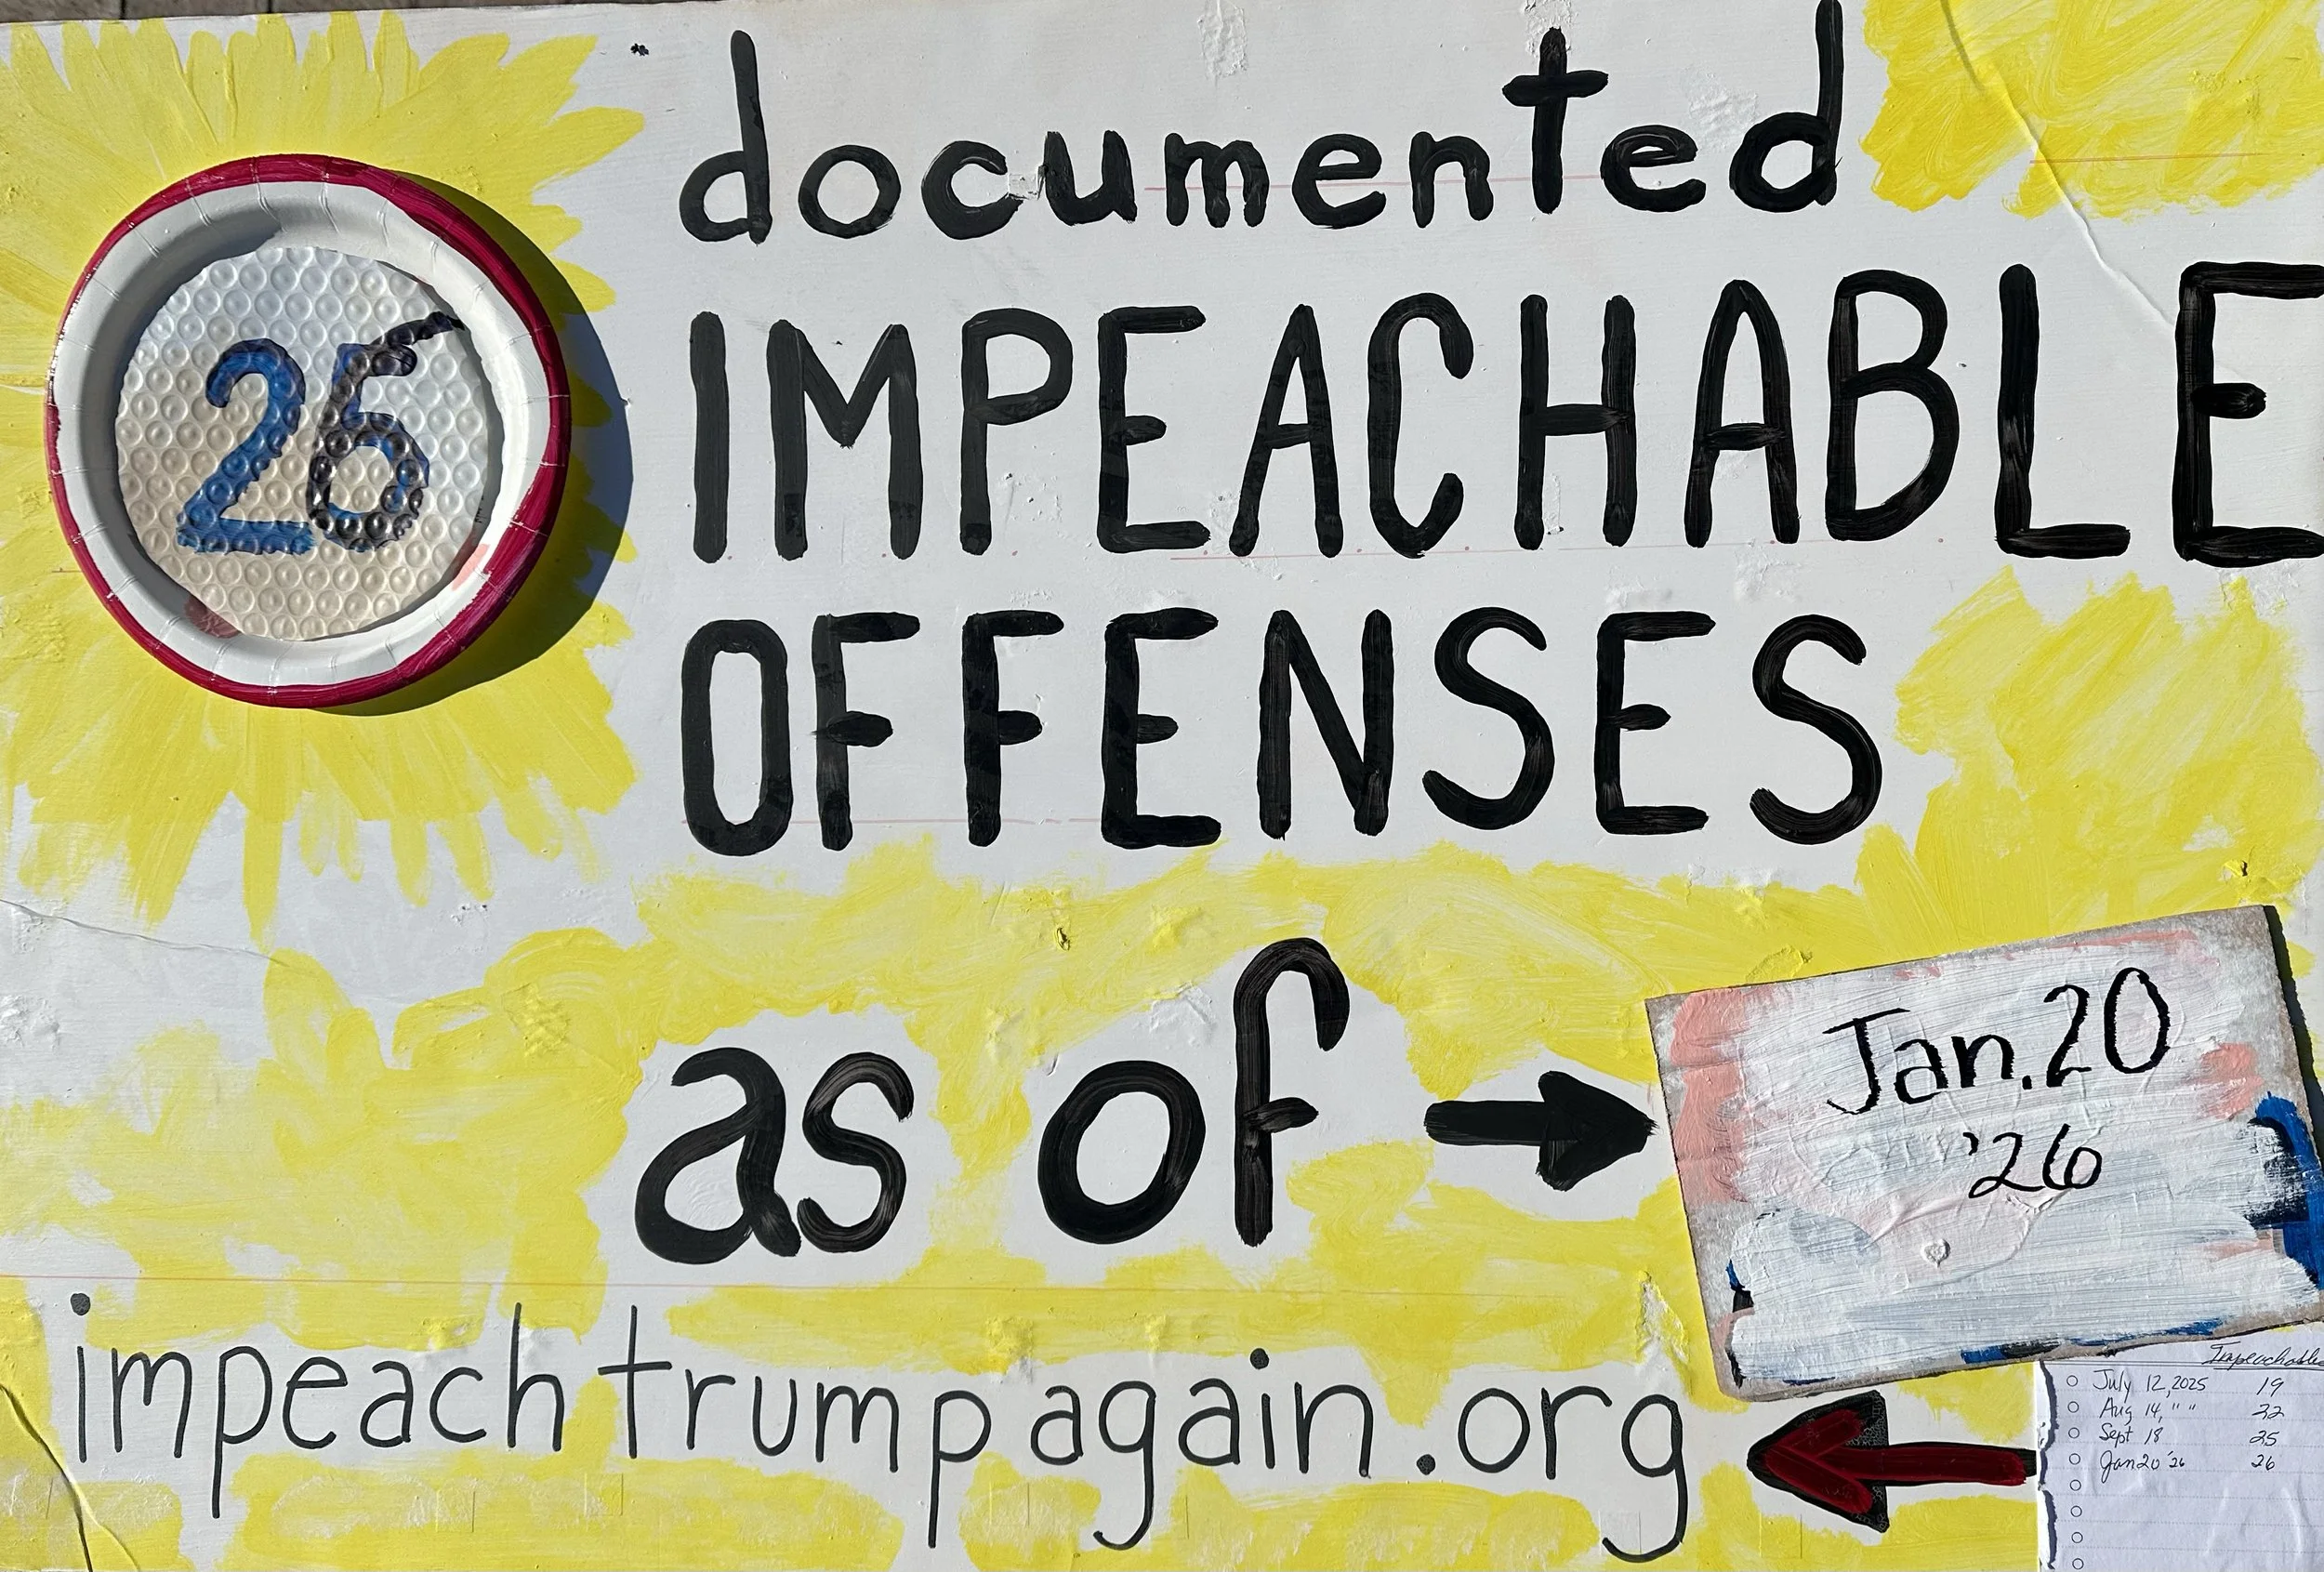 26
documented
IMPEACHABLE
OFFENSES
as of
Jan. 20
'26
impeachtrumpagain.org
Impeachable
July 12, 2025 19
Aug 14, " " 22
Sept 18 25
Jan 20 '26 26